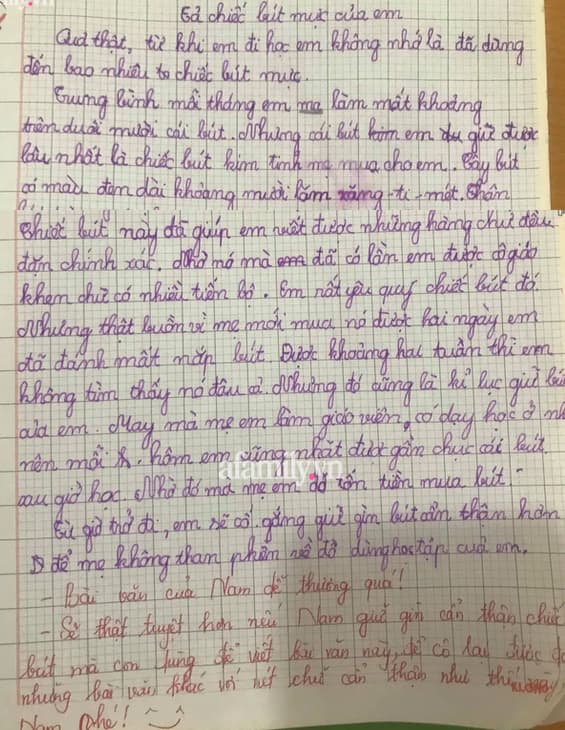 Tả chiếc bút mực của em
Quả thật, từ khi em đi học em không nhớ là đã dùng
đến bao nhiêu chiếc bút mực.
Trung bình mỗi tháng em làm mất khoảng
trên dưới mười cái bút. Nhưng cái bút kim em giữ được
lâu nhất là chiếc bút kim tinh mẹ mua cho em. Cây bút
có màu đen dài khoảng mười lăm xăng-ti-mét. Thân
Chiếc bút này đã giúp em viết được những hàng chữ đều
đặn chính xác. Nhờ nó mà đã có lần em được cô giáo
khen chữ có nhiều tiến bộ. Em rất yêu quý chiếc bút đó.
Nhưng thật buồn vì mẹ mới mua nó được hai ngày em
đã đánh mất nắp bút. Được khoảng hai tuần thì em
không tìm thấy nó đâu cả. Nhưng đó cũng là kỉ lục giữ bú
của em. May mà mẹ em làm giáo viên, có dạy học ở nh
nên mỗi hôm em cũng nhặt được gần chục cái bút
sau giờ học. Nhờ đó mà mẹ em đỡ tốn tiền mua bút.
afamily.vn
Từ giờ trở đi, em sẽ cố gắng giữ gìn bút cẩn thận hơn
để mẹ không than phiền về đồ dùng học tập của em.
- Bài văn của Nam dễ thương quá!
- Sẽ thật tuyệt hơn nếu Nam giữ gìn cẩn thận chiế
bút mà con dùng để viết bài văn này, để cô lại được đ
những bài văn khác với nét chữ cẩn thận như thế này
Nam nhé!